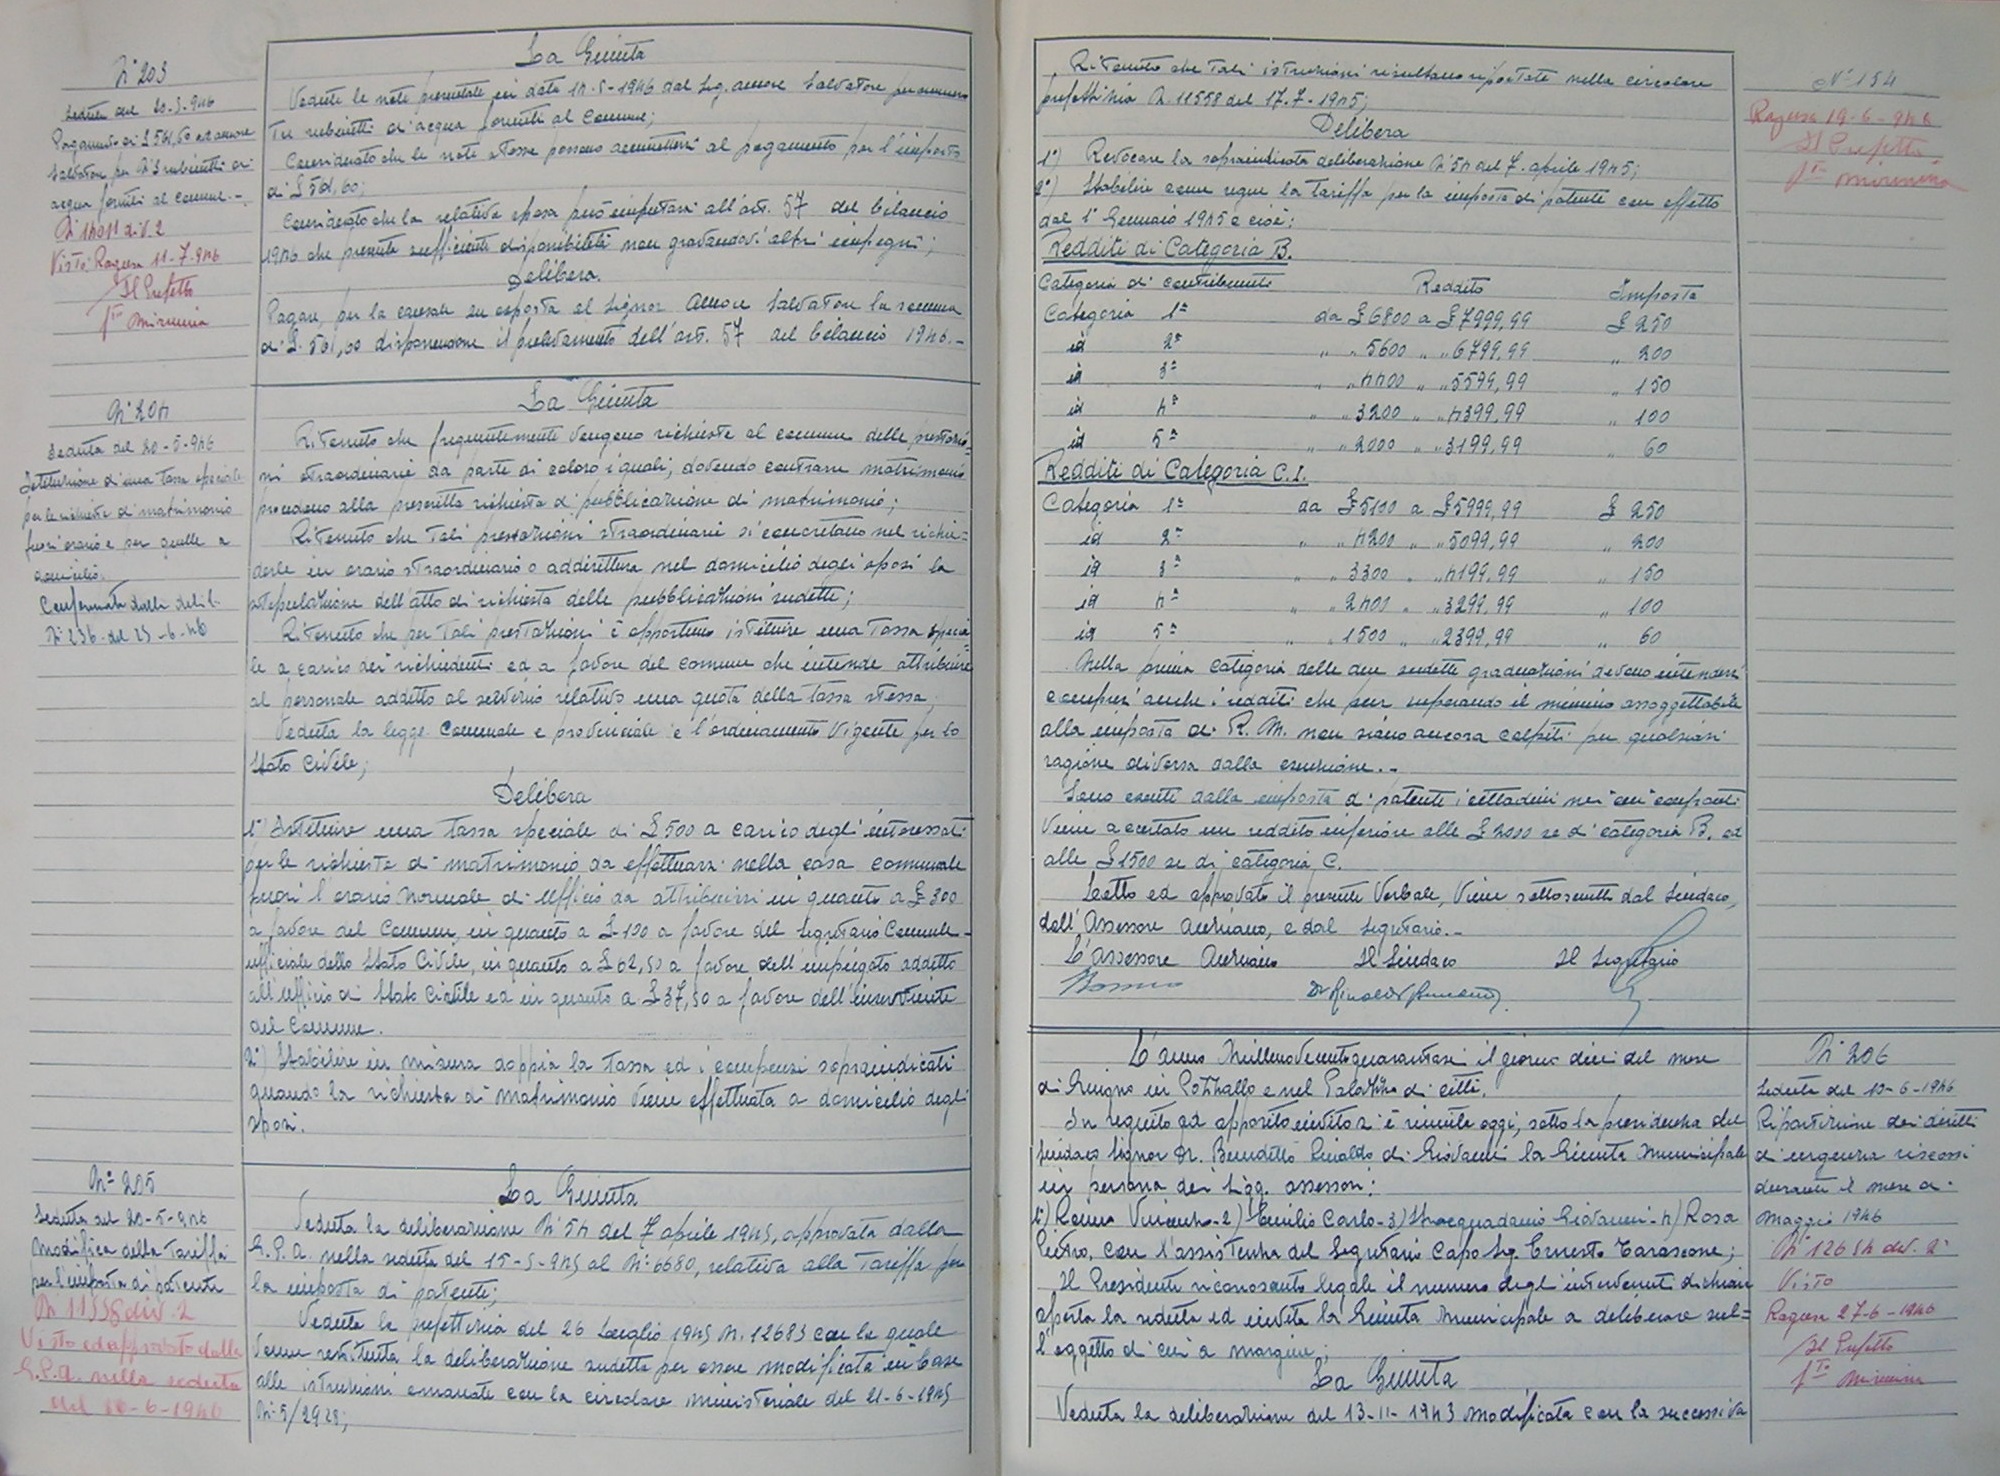 N° 203
Seduta del 20-5-946
Pagamento di £ 501,60 ad Amore
Salvatore per N° 3 rubinetti di
acqua forniti al Comune.-
N° 14011 div. 2
Visto Ragusa 11-7-946
Il Prefetto
fto Mirmina
La Giunta
Vedute le note presentate in data 14-5-1946 dal Sig. Amore Salvatore per numero
Tre rubinetti di acqua forniti al Comune;
Considerato che le note stesse possono ammettersi al pagamento per l'importo
di £ 501,60;
Considerato che la relativa spesa può imputarsi all'art. 57 del bilancio
1946 che presenta sufficiente disponibilità non gravandovi altri impegni;
Delibera.
Pagare, per la causale su esposta al Signor Amore Salvatore la somma
di £. 501,60 disponendone il prelevamento dell'art. 57 del bilancio 1946.-
N° 204
Seduta del 20-5-946
Istituzione di una tassa speciale
per le richieste di matrimonio
fuori orario e per quelle a
domicilio.
Confermata dalla delib.
N° 236 del 25-6-46
La Giunta
Ritenuto che frequentemente vengono richieste al comune delle prestazio=
ni straordinarie da parte di coloro i quali, dovendo contrarre matrimonio
procedono alla prescritta richiesta di pubblicazione di matrimonio;
Ritenuto che tali prestazioni straordinarie si concretano nel richie=
dere in orario straordinario o addirittura nel domicilio degli sposi la
stipulazione dell'atto di richiesta delle pubblicazioni sudette;
Ritenuto che per tali prestazioni è opportuno istituire una tassa specia
le a carico dei richiedenti ed a favore del comune che intende attribuire
al personale addetto al servizio relativo una quota della tassa stessa,
Veduta la legge Comunale e provinciale e l'ordinamento vigente per lo
Stato Civile;
Delibera
1° Istituire una tassa speciale di £ 500 a carico degli interessati
per le richieste di matrimonio da effettuarsi nella casa comunale
fuori l'orario normale di ufficio da attribuirsi in quanto a £ 300
a favore del Comune, in quanto a £ 100 a favore del Segretario Comunale-
ufficiale dello Stato Civile, in quanto a £ 62,50 a favore dell'impiegato addetto
all'ufficio di Stato Civile ed in quanto a £ 37,50 a favore dell'inserviente
del Comune.
2°) Stabilire in misura doppia la tassa ed i compensi sopraindicati
quando la richiesta di matrimonio viene effettuata a domicilio degli
sposi.
N° 205
Seduta del 20-5-946
Modifica della tariffa
per l'imposta di patente
N° 11558 div. 2
Visto ed approvato dalla
G.P.A. nella seduta
del 16-6-1946
La Giunta
Veduta la deliberazione N° 54 del 7 aprile 1945, approvata dalla
G.P.A. nella seduta del 15-5-945 al N° 6680, relativa alla tariffa per
la imposta di patente;
Veduta la prefettizia del 26 Luglio 1945 N. 12683 con la quale
venne restituita la deliberazione sudetta per essere modificata in base
alle istruzioni emanate con la circolare ministeriale del 21-6-1945
N° 5/2928;
Ritenuto che tali istruzioni risultano riportate nella circolare
prefettizia N. 11558 del 17-7-1945;
Delibera
1°) Revocare la sopraindicata deliberazione N° 54 del 7 aprile 1945;
2°) Stabilire come segue la tariffa per la imposta di patente con effetto
dal 1° Gennaio 1945 e cioè:
Redditi di Categoria B.
Categoria di contribuente Reddito Imposta
Categoria 1ª da £ 6800 a £ 7999,99 £ 250
id 2ª " " 5600 " " 6799,99 " 200
id 3ª " " 4400 " " 5599,99 " 150
id 4ª " " 3200 " " 4399,99 " 100
id 5ª " " 2000 " " 3199,99 " 60
Redditi di Categoria C.1.
Categoria 1ª da £ 5100 a £ 5999,99 £ 250
id 2ª " " 4200 " " 5099,99 " 200
id 3ª " " 3300 " " 4199,99 " 150
id 4ª " " 2400 " " 3299,99 " 100
id 5ª " " 1500 " " 2399,99 " 60
Nella prima categoria delle due sudette graduazioni devono intendersi
compresi anche i redditi che pur superando il minimo assoggettabile
alla imposta di R. M. non siano ancora colpiti per qualsiasi
ragione diversa dalla esenzione.-
Sono esenti dalla imposta di patente i cittadini nei cui confronti
viene accertato un reddito inferiore alle £ 2000 se di categoria B. ed
alle £ 1500 se di categoria C.
Letto ed approvato il presente Verbale, viene sottoscritto dal Sindaco,
dall'Assessore Anziano, e dal Segretario.-
L'Assessore Anziano Il Sindaco Il Segretario
N° 154
Ragusa 19-6-946
Il Prefetto
fto Mirmina
L'anno Millenovecentoquarantasei il giorno dieci del mese
di Giugno in Pozzallo e nel Palazzo di città.
In seguito ad apposito invito si è riunita oggi, sotto la presidenza del
Sindaco Signor Dr. Benedetto Rinaldo di Giovanni la Giunta Municipale
in persona dei Sigg. assessori:
1°) Vincenzo-2) Carlo-3) Giovanni-4) Rosa
Pietro, con l'assistenza del Segretario Capo Sig. Ernesto Tarascone;
Il Presidente riconosciuto legale il numero degli intervenuti dichiara
aperta la seduta ed invita la Giunta Municipale a deliberare sul=
l'oggetto di cui a margine;
La Giunta
Veduta la deliberazione del 13-11-1943 modificata con la successiva
N° 206
Seduta del 10-6-1946
Ripartizione dei diritti
di urgenza riscossi
durante il mese di
Maggio 1946
N° 12654 div. 2ª
Visto
Ragusa 27-6-1946
Il Prefetto
fto Mirmina